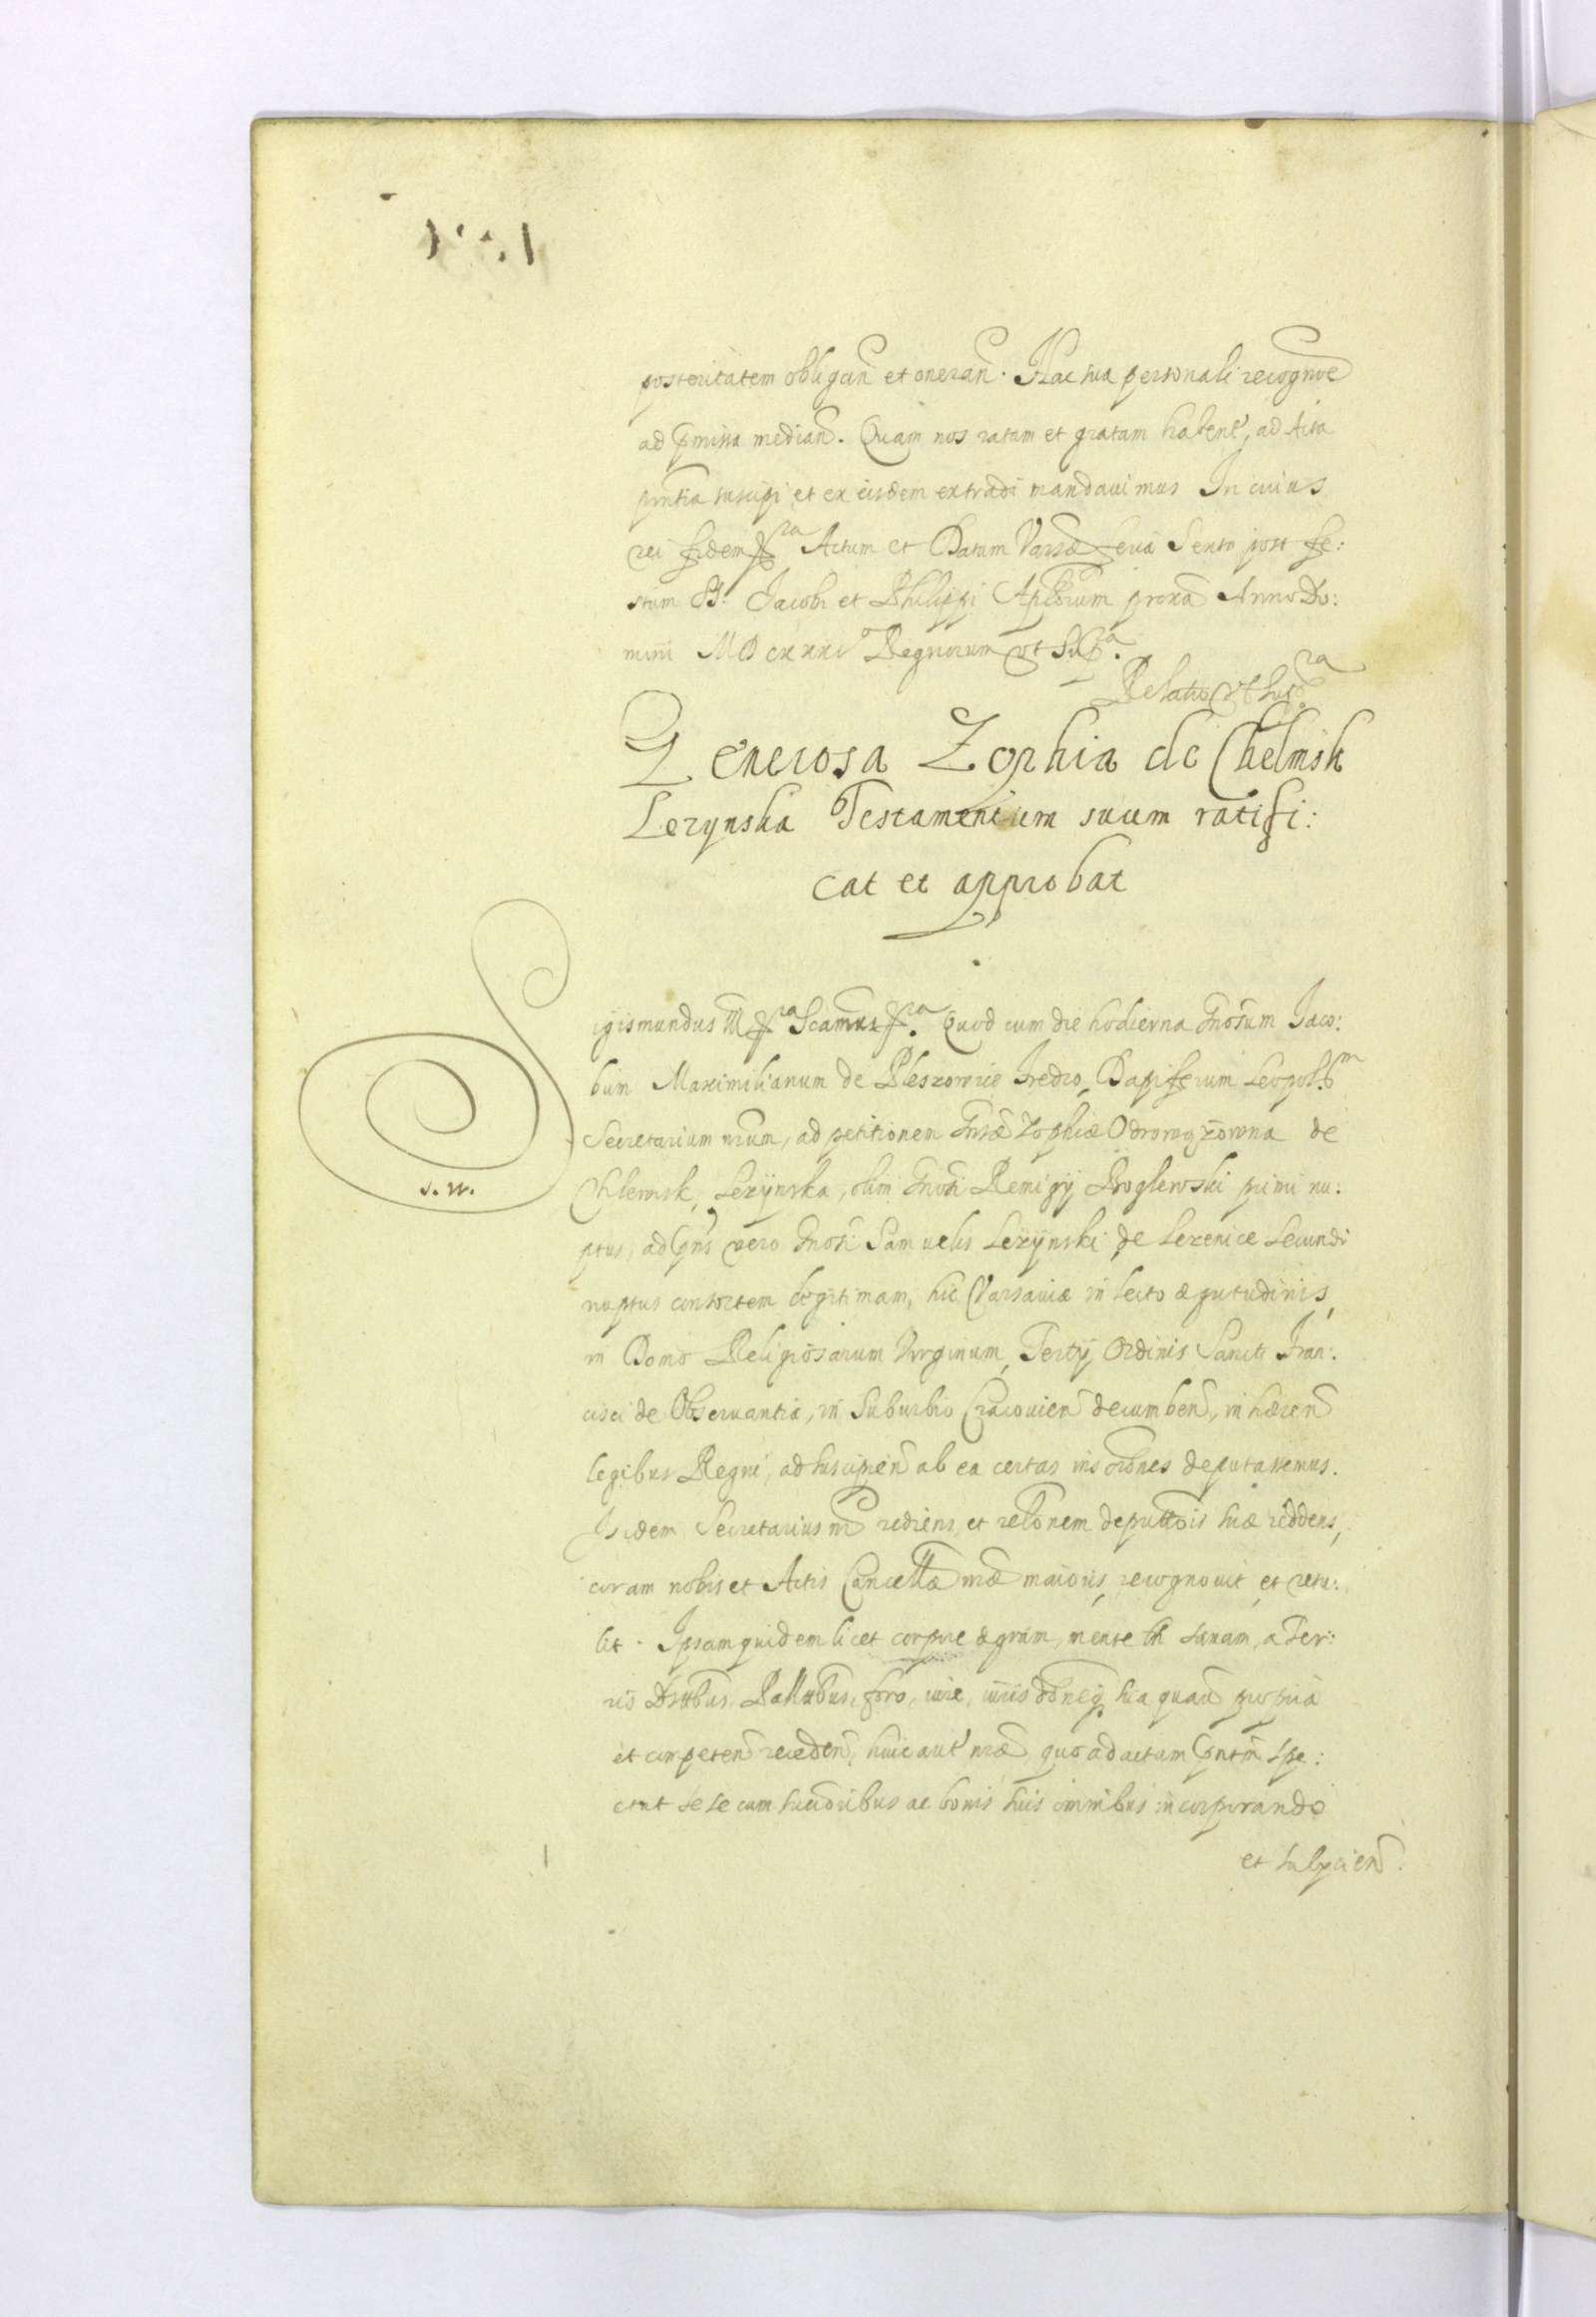 posteritatem obligan et oneran. Hac sua personali recognoe
ad pmissa median. Quam nos ratam et gratam haben, ad Acta
pntia suscipi, et ex eisdem extradi mandauimus In cuius
rei fidem Actum et Datum Varsæ feria Sexta post fe:
stum B: Jacobi et Philippi Aplorum proxa Anno Do:
mini MDCXXXI Regnorum vt supra.
Relatio vt supra
Generosa Zophia de Chelmsk
Lezynska Testamentum suum ratifi:
cat et approbat
Sigismundus III Quod cum die hodierna Gnosum Jaco:
bum Maximilianum de Pleszowice Fredro, Dapiferum Leopol.
Secretarium nrum, ad petitionem Gnsæ Zophiæ Odrowązowna de
Chlemsk, Lezynska, olim Gnosi Remigij Proglewski primi nu:
ptus, ad pns vero Gnosi Samuelis Lezynski de Lezenice secundi
nuptus consortem legitimam, hic Varsauiæ in lecto ægritudinis,
in Domo Religiosarum Virginum, Tertij Ordinis Sancti Fran:
cisci de Obseruantia, in Suburbio Cracouien decumben, in hæren
legibus Regni, ad suscipien ab ea certas inscrones deputassemus.
Isidem Secretarius nr rediens, et relonem deputtois suæ reddens,
coram nobis et Actis Cancellæ nræ maioris, recognouit, et retu:
lit. Ipsam quidem licet corpore ægram, mente tn sanam, a Ter:
ris Dsttibus, Pallatibus, foro, iure, iurisdoneq sua quauis propria
et competen receden, huic aut nræ quo ad actum pntem spe:
ctat se se cum succoribus ac bonis suis omnibus incorporando
et subycien
S. W.